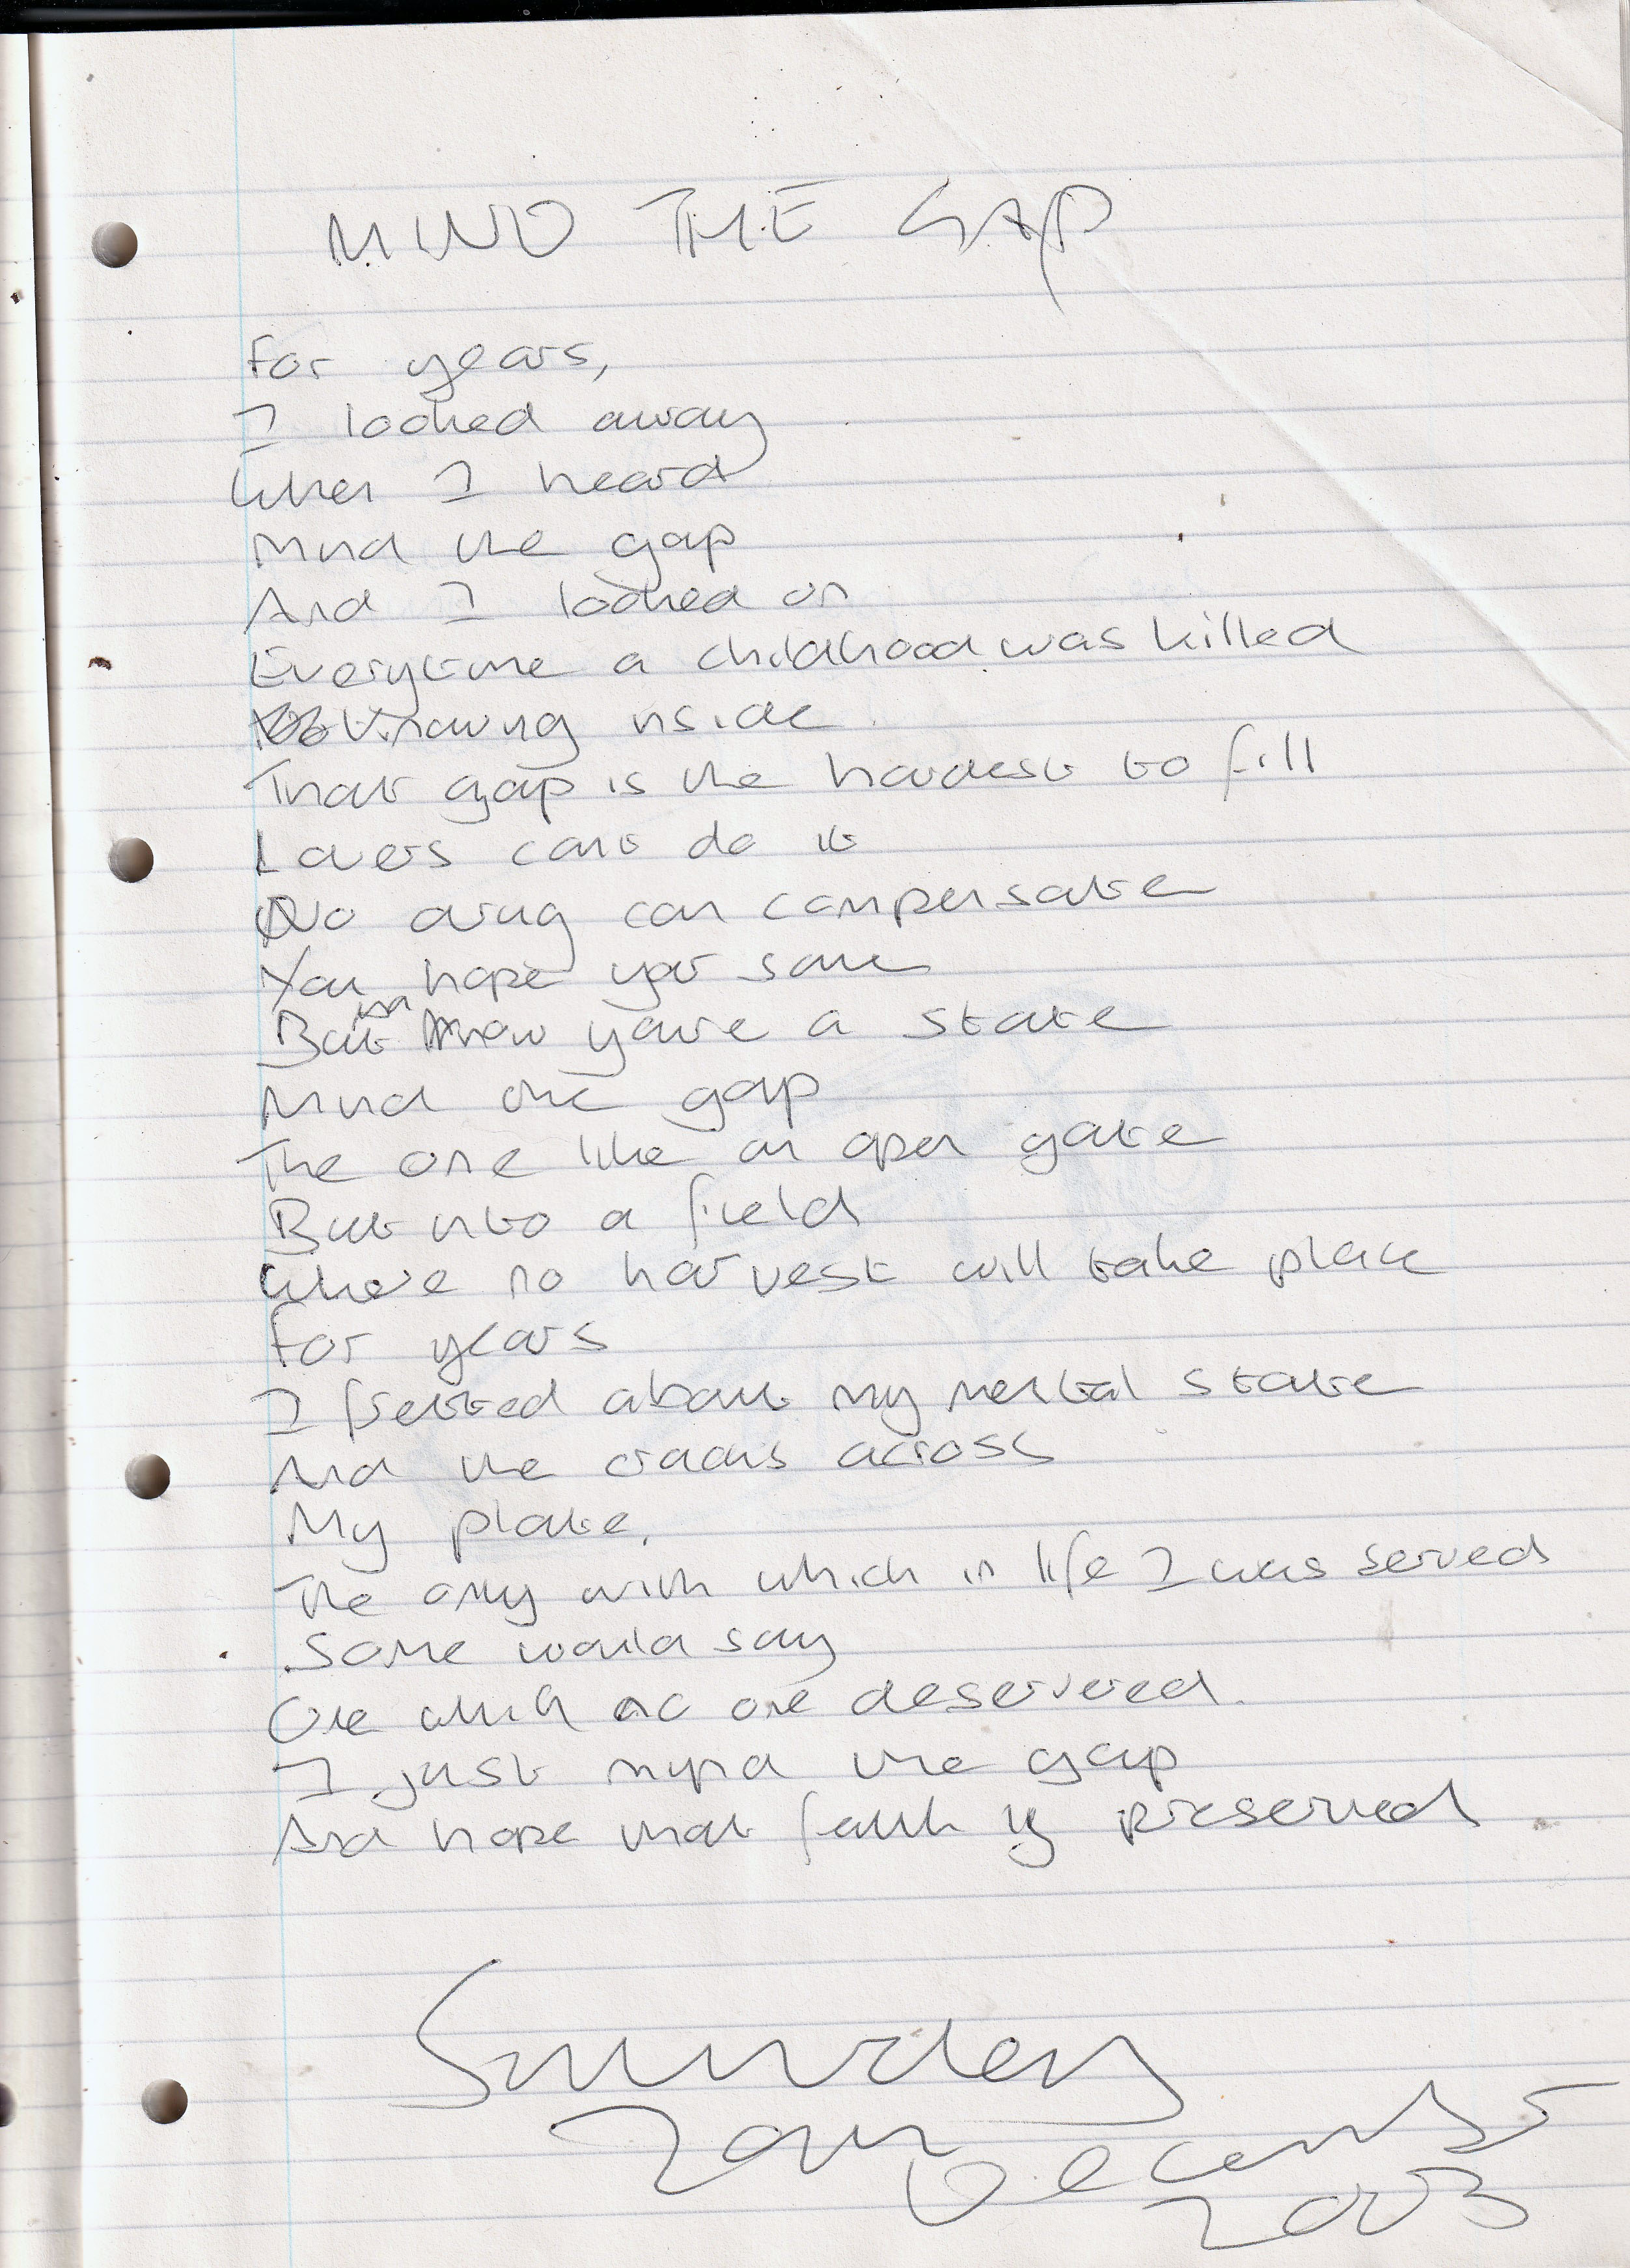 MIND THE GAP
For years,
I looked away
When I heard
Mind the gap
And I looked on
Everytime a childhood was killed
Knowing inside
That gap is the hardest to fill
Lovers cant do it
No drug can compensate
You hope your sane
But know you're a state
Mind the gap
The one like an open gate
But into a field
Where no harvest will take place
For years
I fretted about my mental state
And the cracks across
My plate,
The only with which in life I was served
Some would say
One which no one deserved.
I just mind the gap
And hope that faith is preserved
Sunday
December
2003